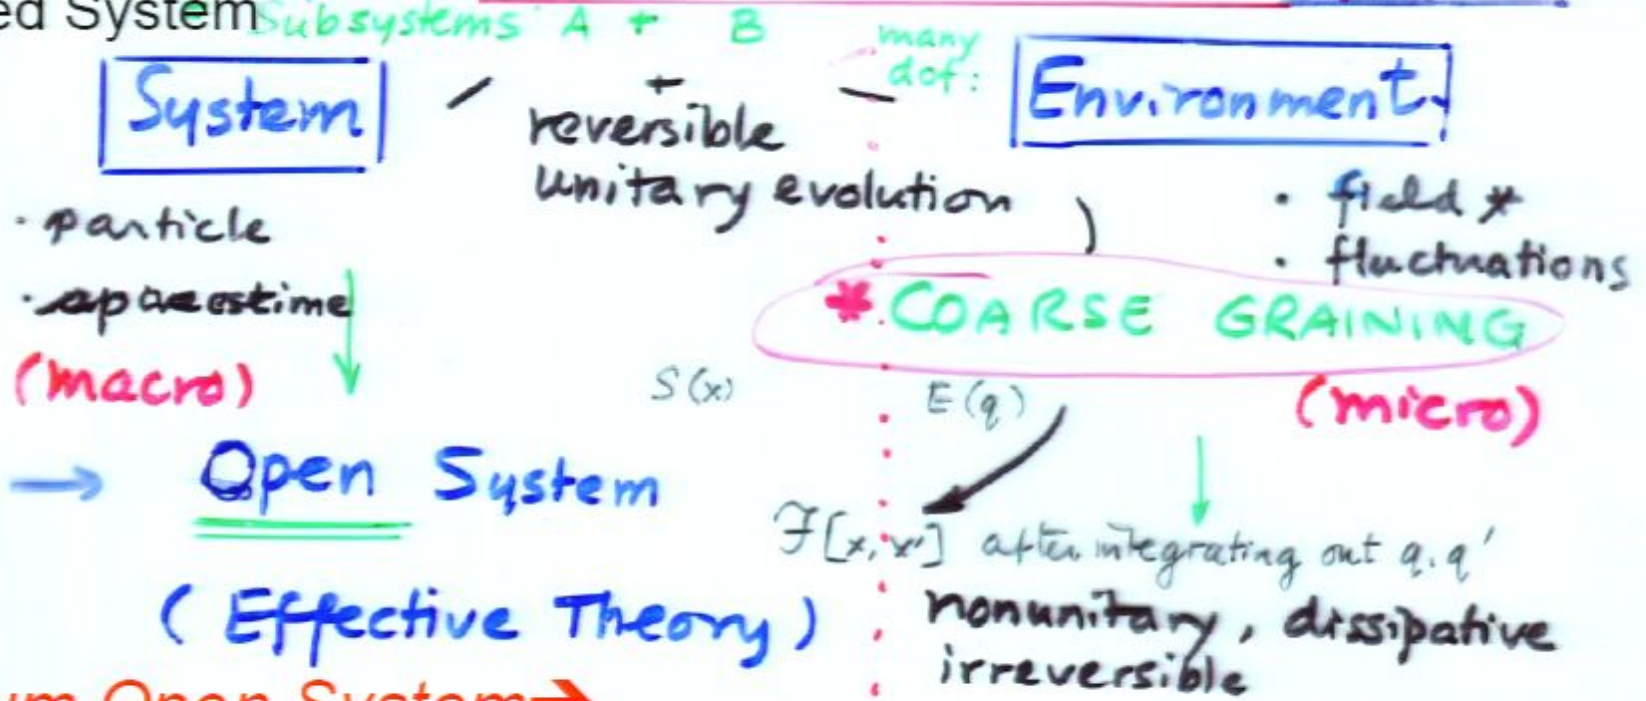 ed System
Subsystems A + B
many
dof:
System
reversible
unitary evolution
Environment
· particle
· spacetime
(macro)
· field *
· fluctuations
* COARSE GRAINING
(micro)
S(x)
E(q)
→ Open System
F[x,x'] after integrating out q.q'
(Effective Theory)
nonunitary, dissipative
irreversible
um Open System→